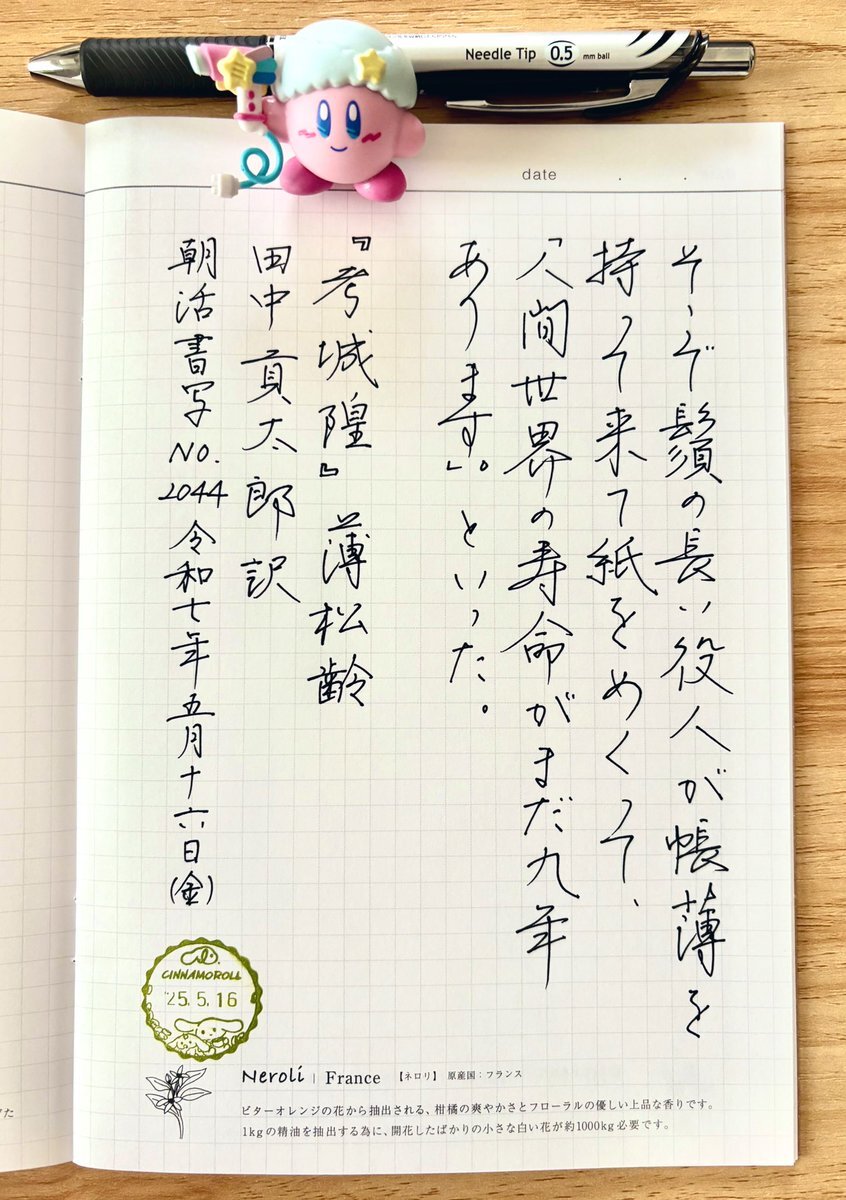 Needle Tip 0.5 mm ball
date
そこで鬚の長い役人が帳薄を
持って来て紙をめくって、
「人間世界の寿命がまだ九年
あります」。といった。
『考城隍』薄松齢
田中貢太郎訳
朝活書写 NO.2044 令和七年五月十六日(金)
CINNAMOROLL
'25.5.16
Neroli | France 【ネロリ】 原産国：フランス
ビターオレンジの花から抽出される、柑橘の爽やかさとフローラルの優しい上品な香りです。
1kgの精油を抽出する為に、開花したばかりの小さな白い花が約1000kg必要です。